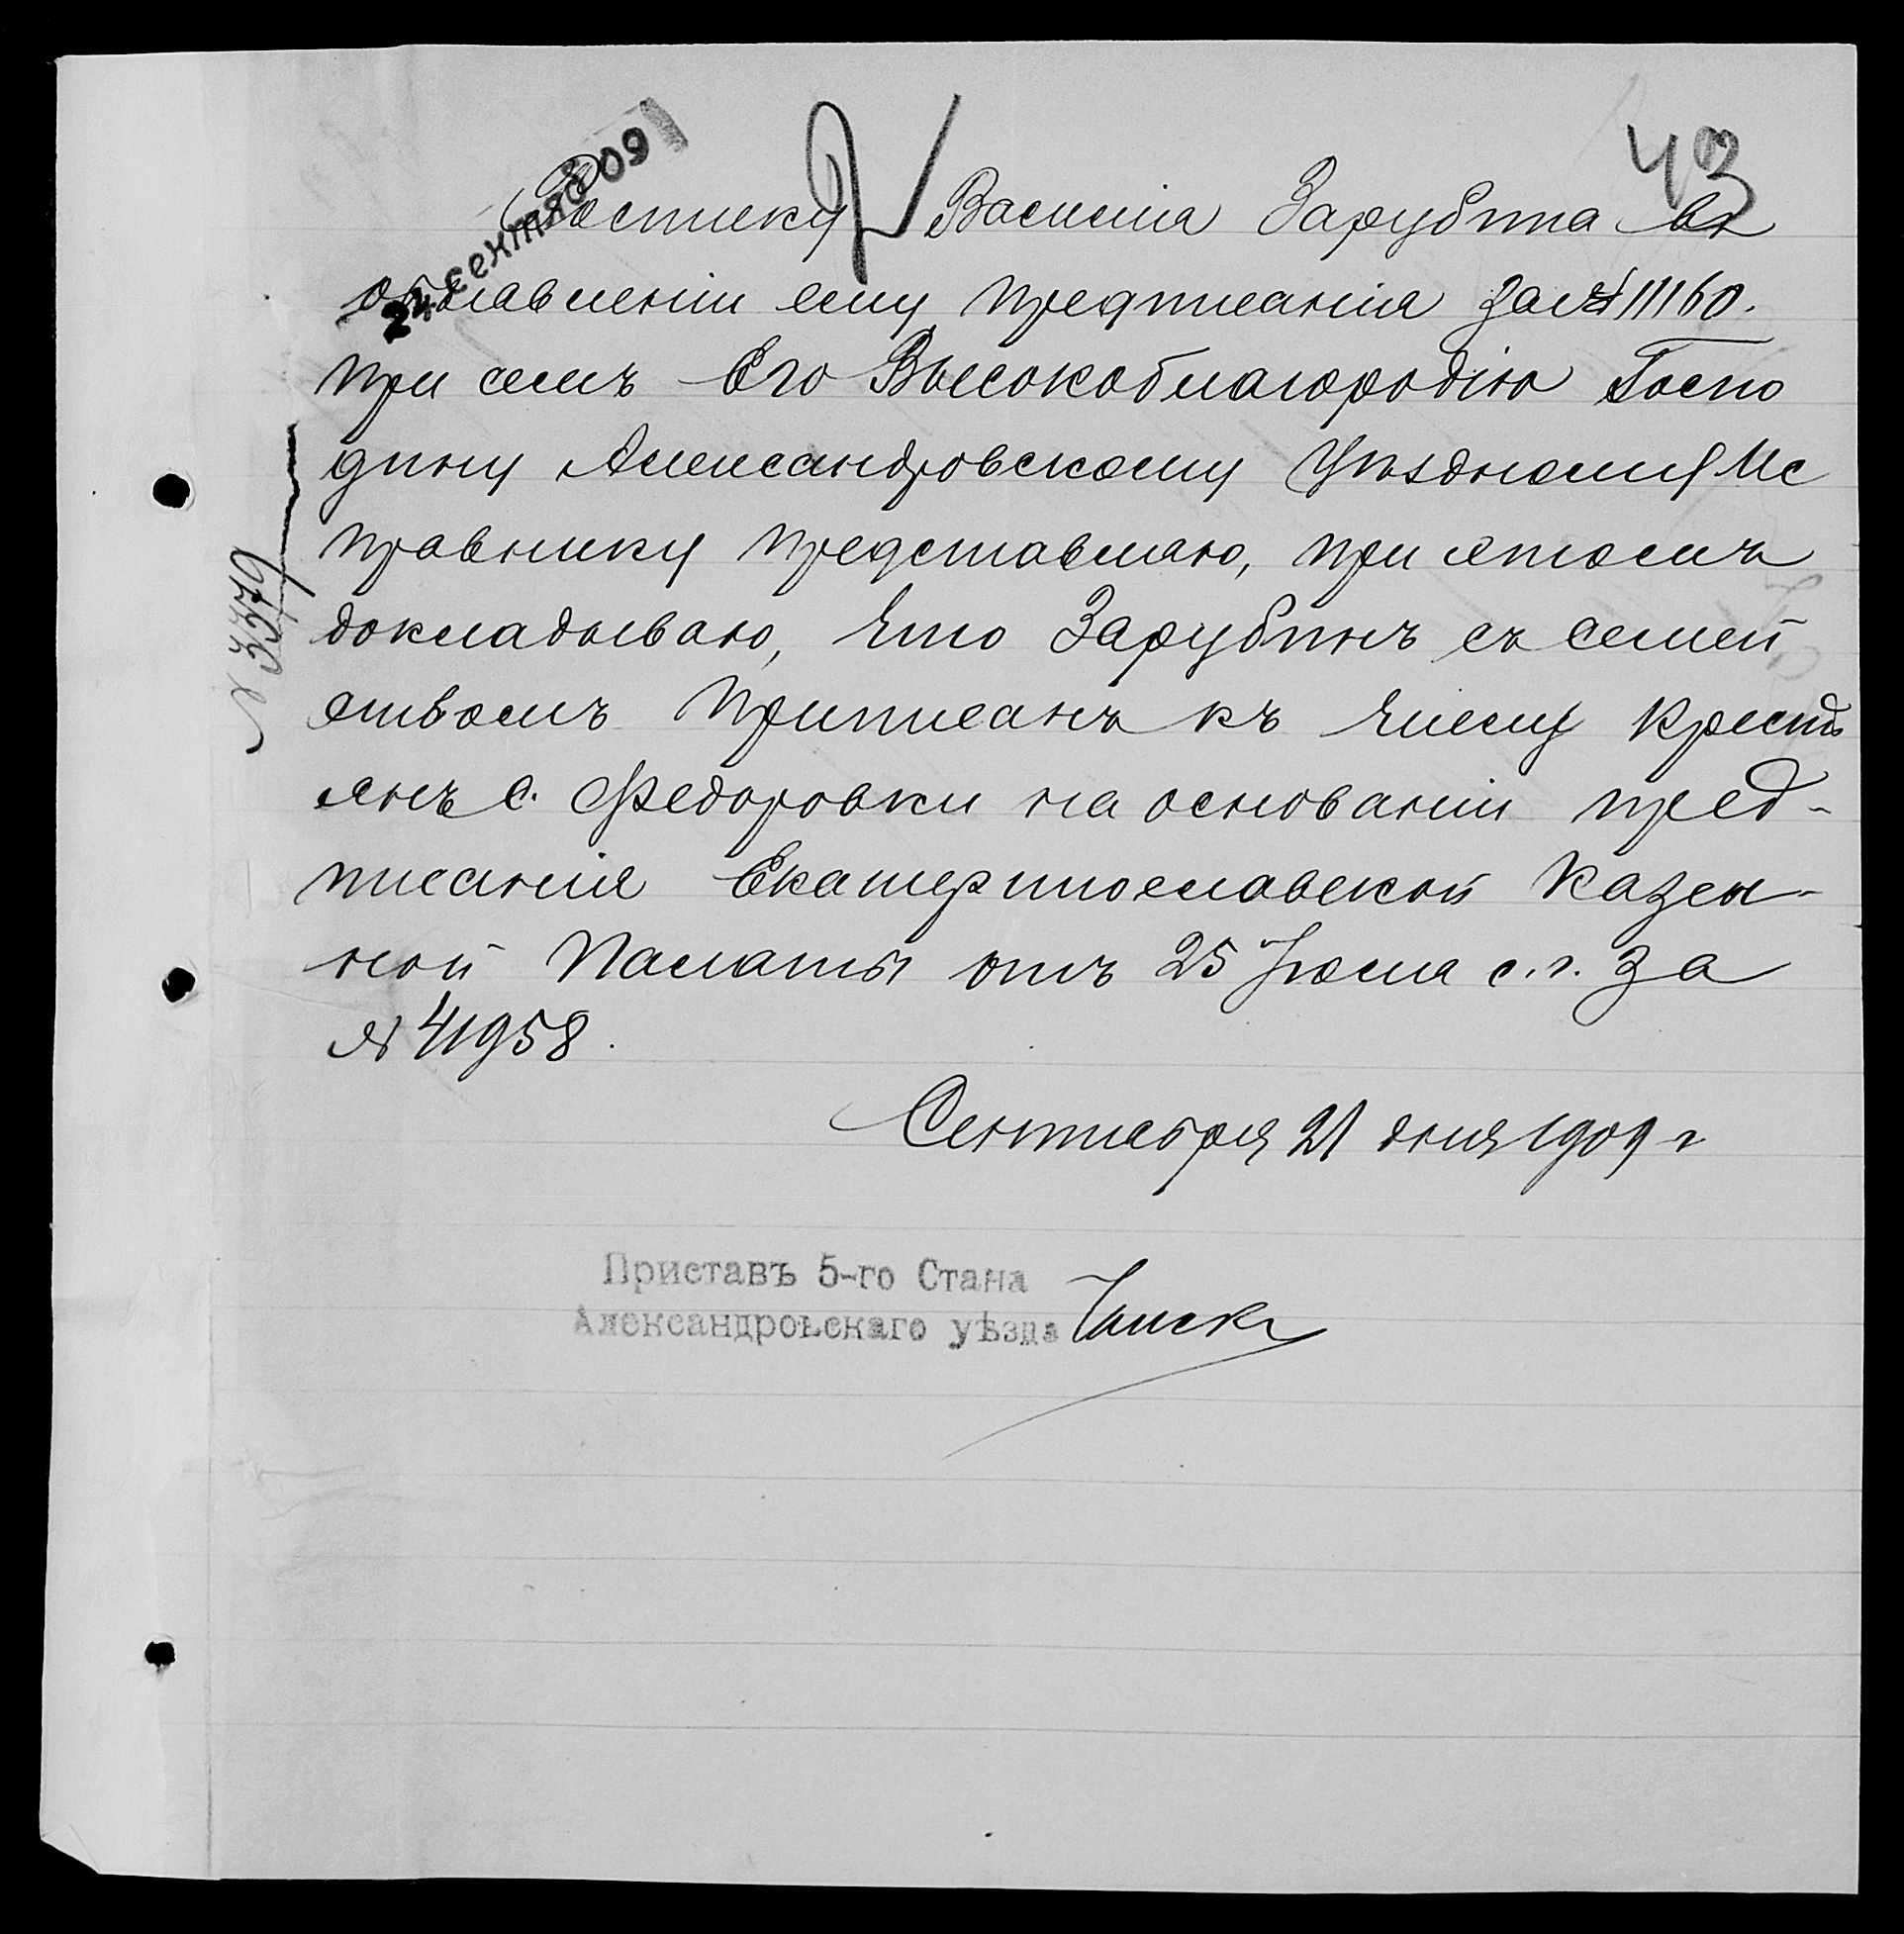 43
24 сентяб 909
Росписку Василія Зарубина въ
объявленіи ему предписанія за № 11160.
при семъ Его Высокоблагородію Госпо
дину Александровскому Уѣздному Ис
правнику представляю, при этомъ
докладываю, что Зарубинъ съ семей
ствомъ приписанъ къ числу кресть
янъ с. Федоровки на основаніи пред-
писанія Екатеринославской Казен-
ной Палаты отъ 25 Іюля с. г. за
№ 41958.
Сентября 21 дня 1909 г
Приставъ 5-го Стана
Александровскаго уѣзда
№ 3379